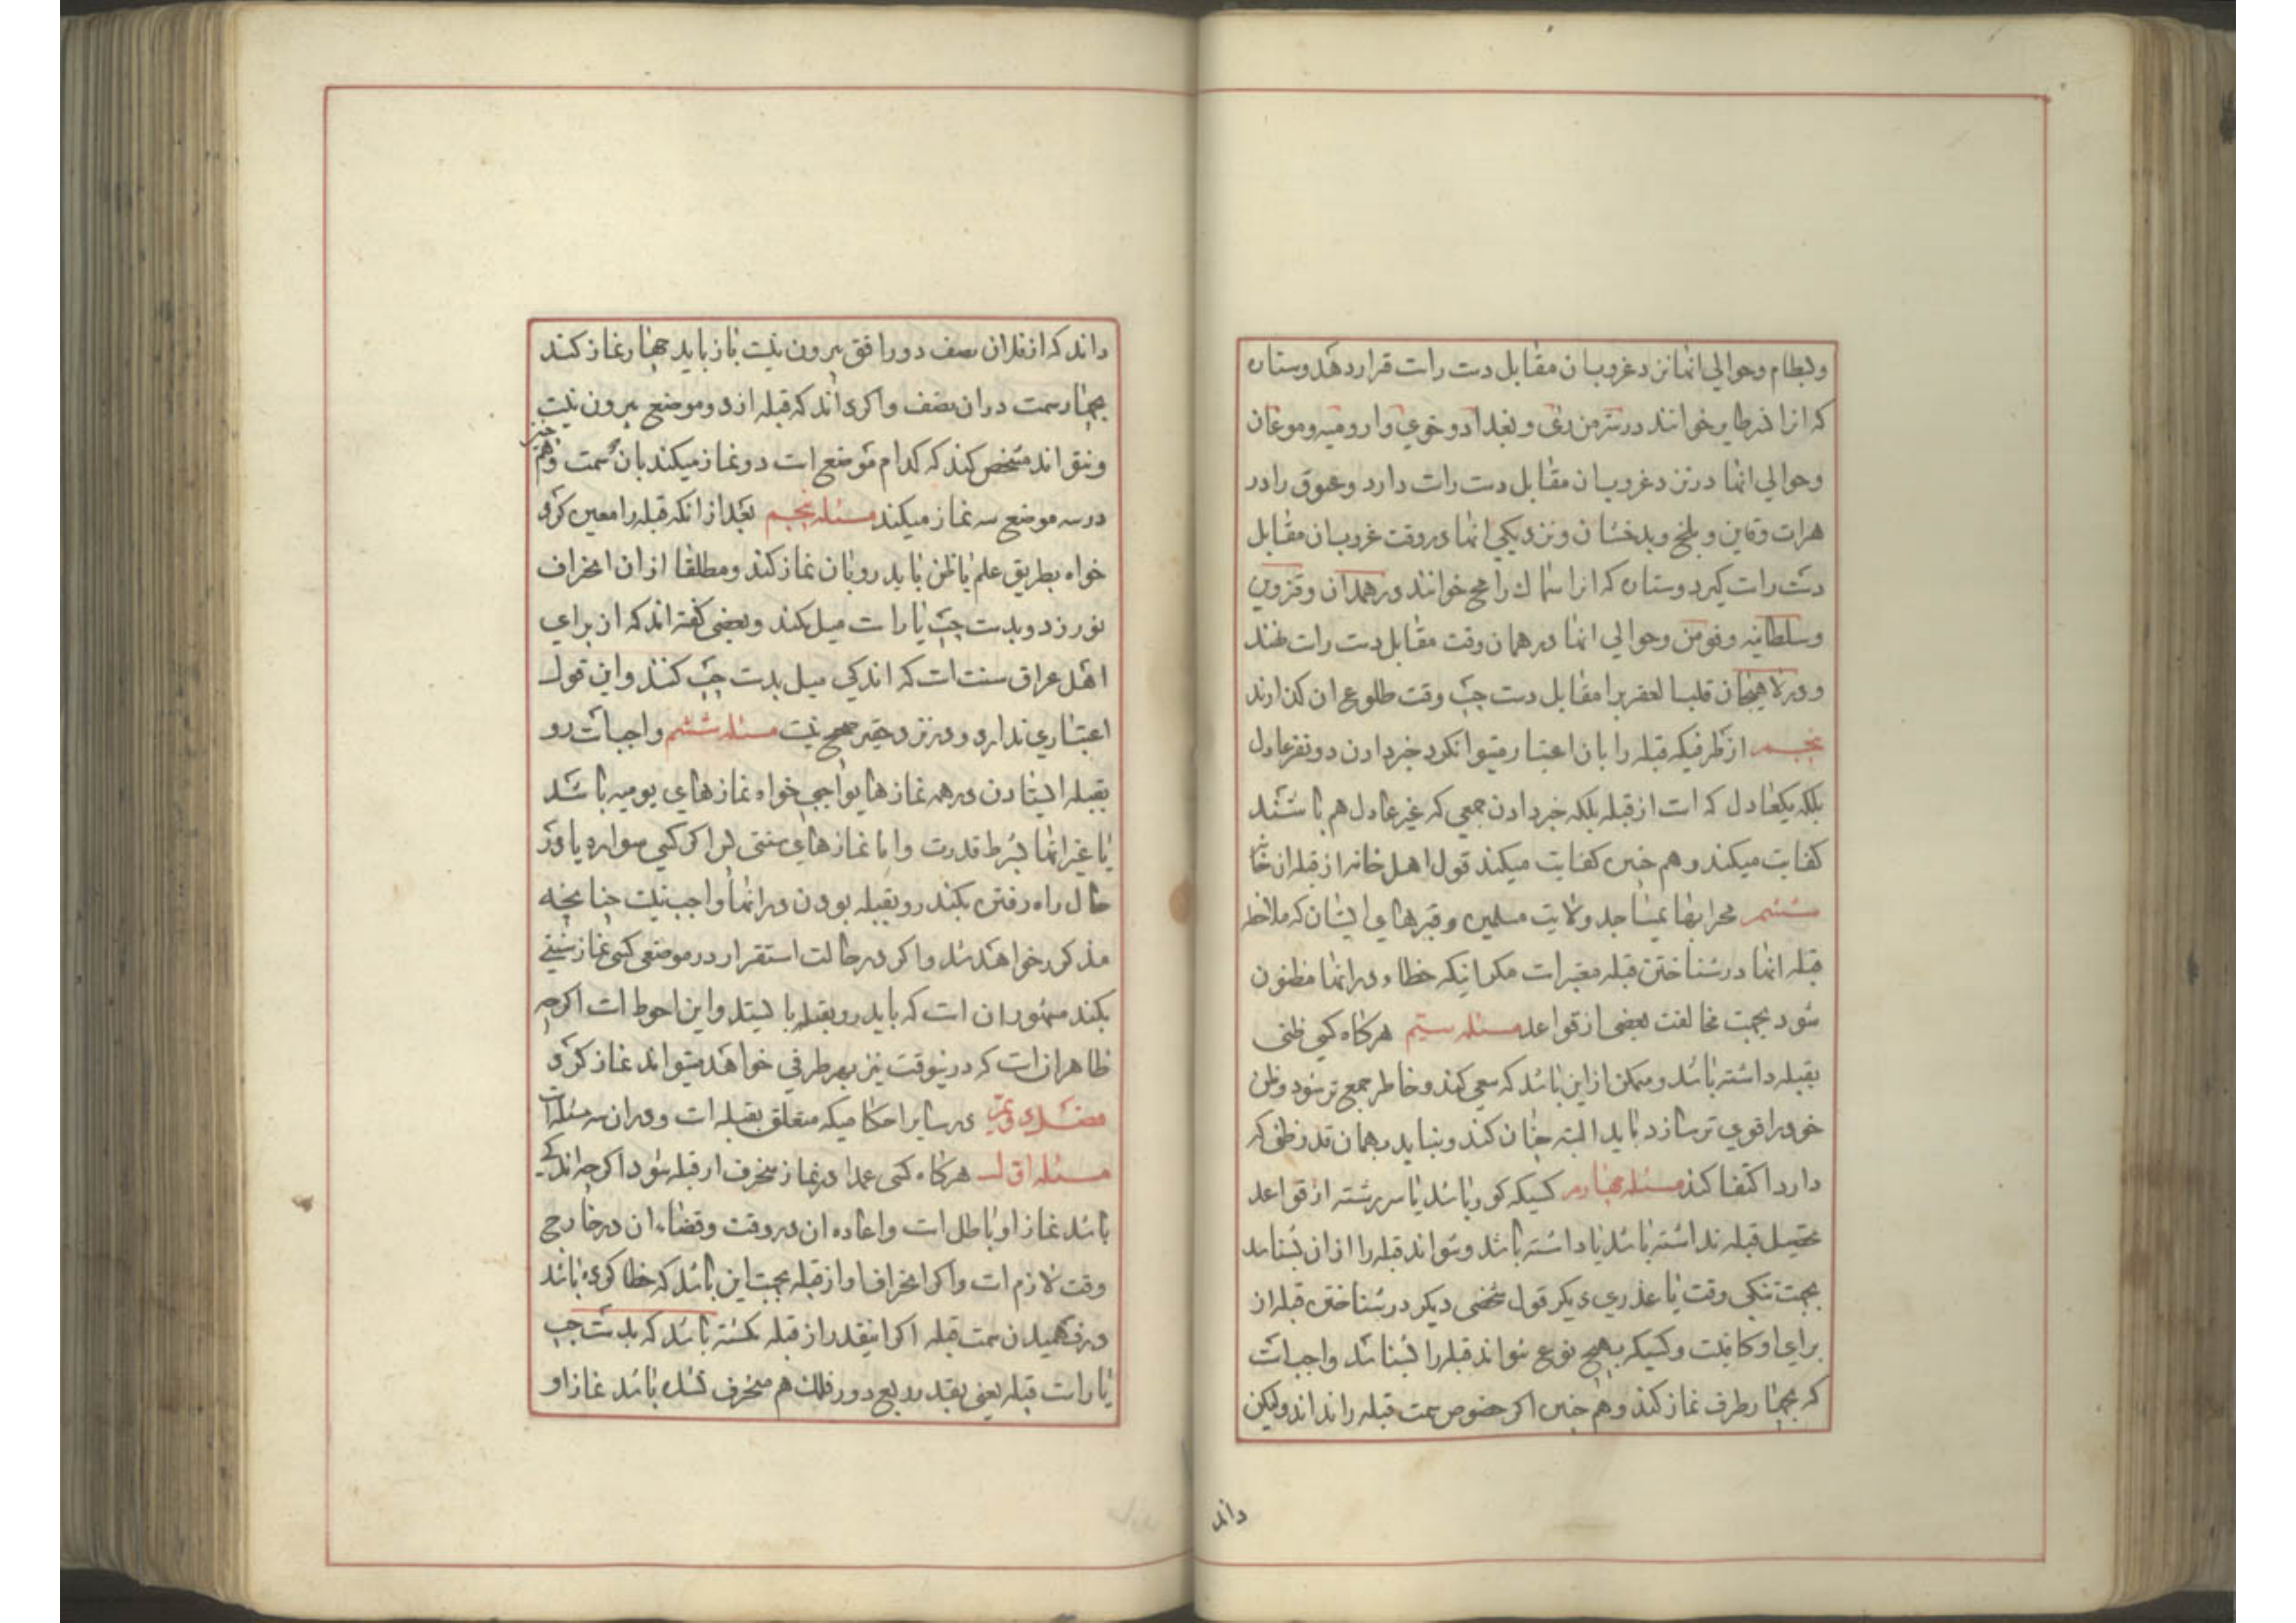 وبسطام وحوالي انها نزد غروبان مقابل دست راست قرار دهد وستاره
که انرا نسرطایر خوانند در سرمن رای و بغداد و خوي وارومیه وموغان
وحوالي انها در نزد غروبان مقابل دست راست دارد وعیوق را در
هرات وقاین و بلخ و بدخشان ونزدیکي انها در وقت غروبان مقابل
دست راست کیرد وستاره که انرا سماك رامح خوانند در همدان وقزوین
وسلطانیه وقومن وحوالي انها در همان وقت مقابل دست راست نهند
و در لاهیجان قلب العقرب را مقابل دست چپ وقت طلوع ان کذارند
پنجم از طرفیکه قبله را بان اعتبار میتوانکرد خبر دادن دو نفر عادل
بلکه یکعادل که است از قبله بلکه خبر دادن جمعي که غیر عادل هم باشند
کفایت میکند وهم چنین کفایت میکند قول اهل خانه از قبله ان خانه
ششم محرابهای مساجد ولایت مسلمین وقبرهاي ایشان که ملاخطه
قبله انها در شناختن قبله معتبرست مکر انیکه خطاء در انها مظنون
شود بجهت مخالفت بعضي از قواعد مسئله سیم هرکاه کسی ظنی
بقبله داشته باشد وممکن از این باشد که سعي کند وخاطر جمع تر شود وظن
خود را قوي تر سازد باید البته چنان کند ونباید بهمان قدر ظنی که
دارد اکتفا کند مسئله چهارم کسیکه کور باشد یا سر رشته از قواعد
تحصیل قبله نداشته باشد یا داشته باشد ونتواند قبله را از ان بشناسد
بجهت تنکي وقت یا عذري دیکر قول شخصی دیکر در شناختن قبله از
براي او کافیست وکسیکه بهیچ نوع نتواند قبله را بشناسد واجبست
که بچهار طرف نماز کند وهم چنین اکر خصوص سمت قبله را نداند ولیکن
داند
داند که از فلان نصف دور افق بیرون نیست باز باید چهار نماز کند
بچهار سمت در ان نصف واکر داند که قبله از دو موضع بیرون نیست
ونتواند مشخص کند که کدام موضع است دو نماز میکند بان سمت وهم چنین
در سه موضع سه نماز میکند مسئله پنجم بعد از انکه قبله را معین کرد
خواه بطریق علم یا ظن باید رو بان نماز کند ومطلقا از ان انحراف
نورزد وبدست چپ یا راست میل نکند وبعضی کفته اند که از براي
اهل عراق سنت است که اندکي میل بدست چپ کنند واین قول
اعتباري ندارد و در نزد حقیر صحیح نیست مسئله ششم واجبست رو
بقبله ایستادن در همه نماز هاي واجبي خواه نمازهاي یومیه باشد
یا غیر انها بشرط قدرت واما نماز هاي سنتي پس اکر کسي سواره یا در
حال راه رفتن بکند رو بقبله بودن در انها واجب نیست چنانچه
مذکور خواهد شد واکر در حالت استقرار در موضعی کسی نماز سنتي
بکند مشهور ان است که باید رو بقبله بایستد واین احوط است اکرچه
ظاهر انست که در ینوقت نیز بهر طرفي خواهد میتواند نماز کرد
فصل دویم در سایر احکامیکه متعلق بقبله است و در ان سه مسئله است
مسئله اول هرکاه کسی عمدا در نماز منحرف از قبله شود اکرچه اندکي
باشد نماز او باطل است واعاده ان در وقت وقضاء ان در خارج
وقت لازم است واکر انحراف او از قبله بجهت این باشد که خطا کرده باشد
در فهمیدن سمت قبله اکر اینقدر از قبله کشته باشد که بدست چپ
یا راست قبله یعنی بقدر ربع دور فلك هم منحرف نشده باشد نماز او